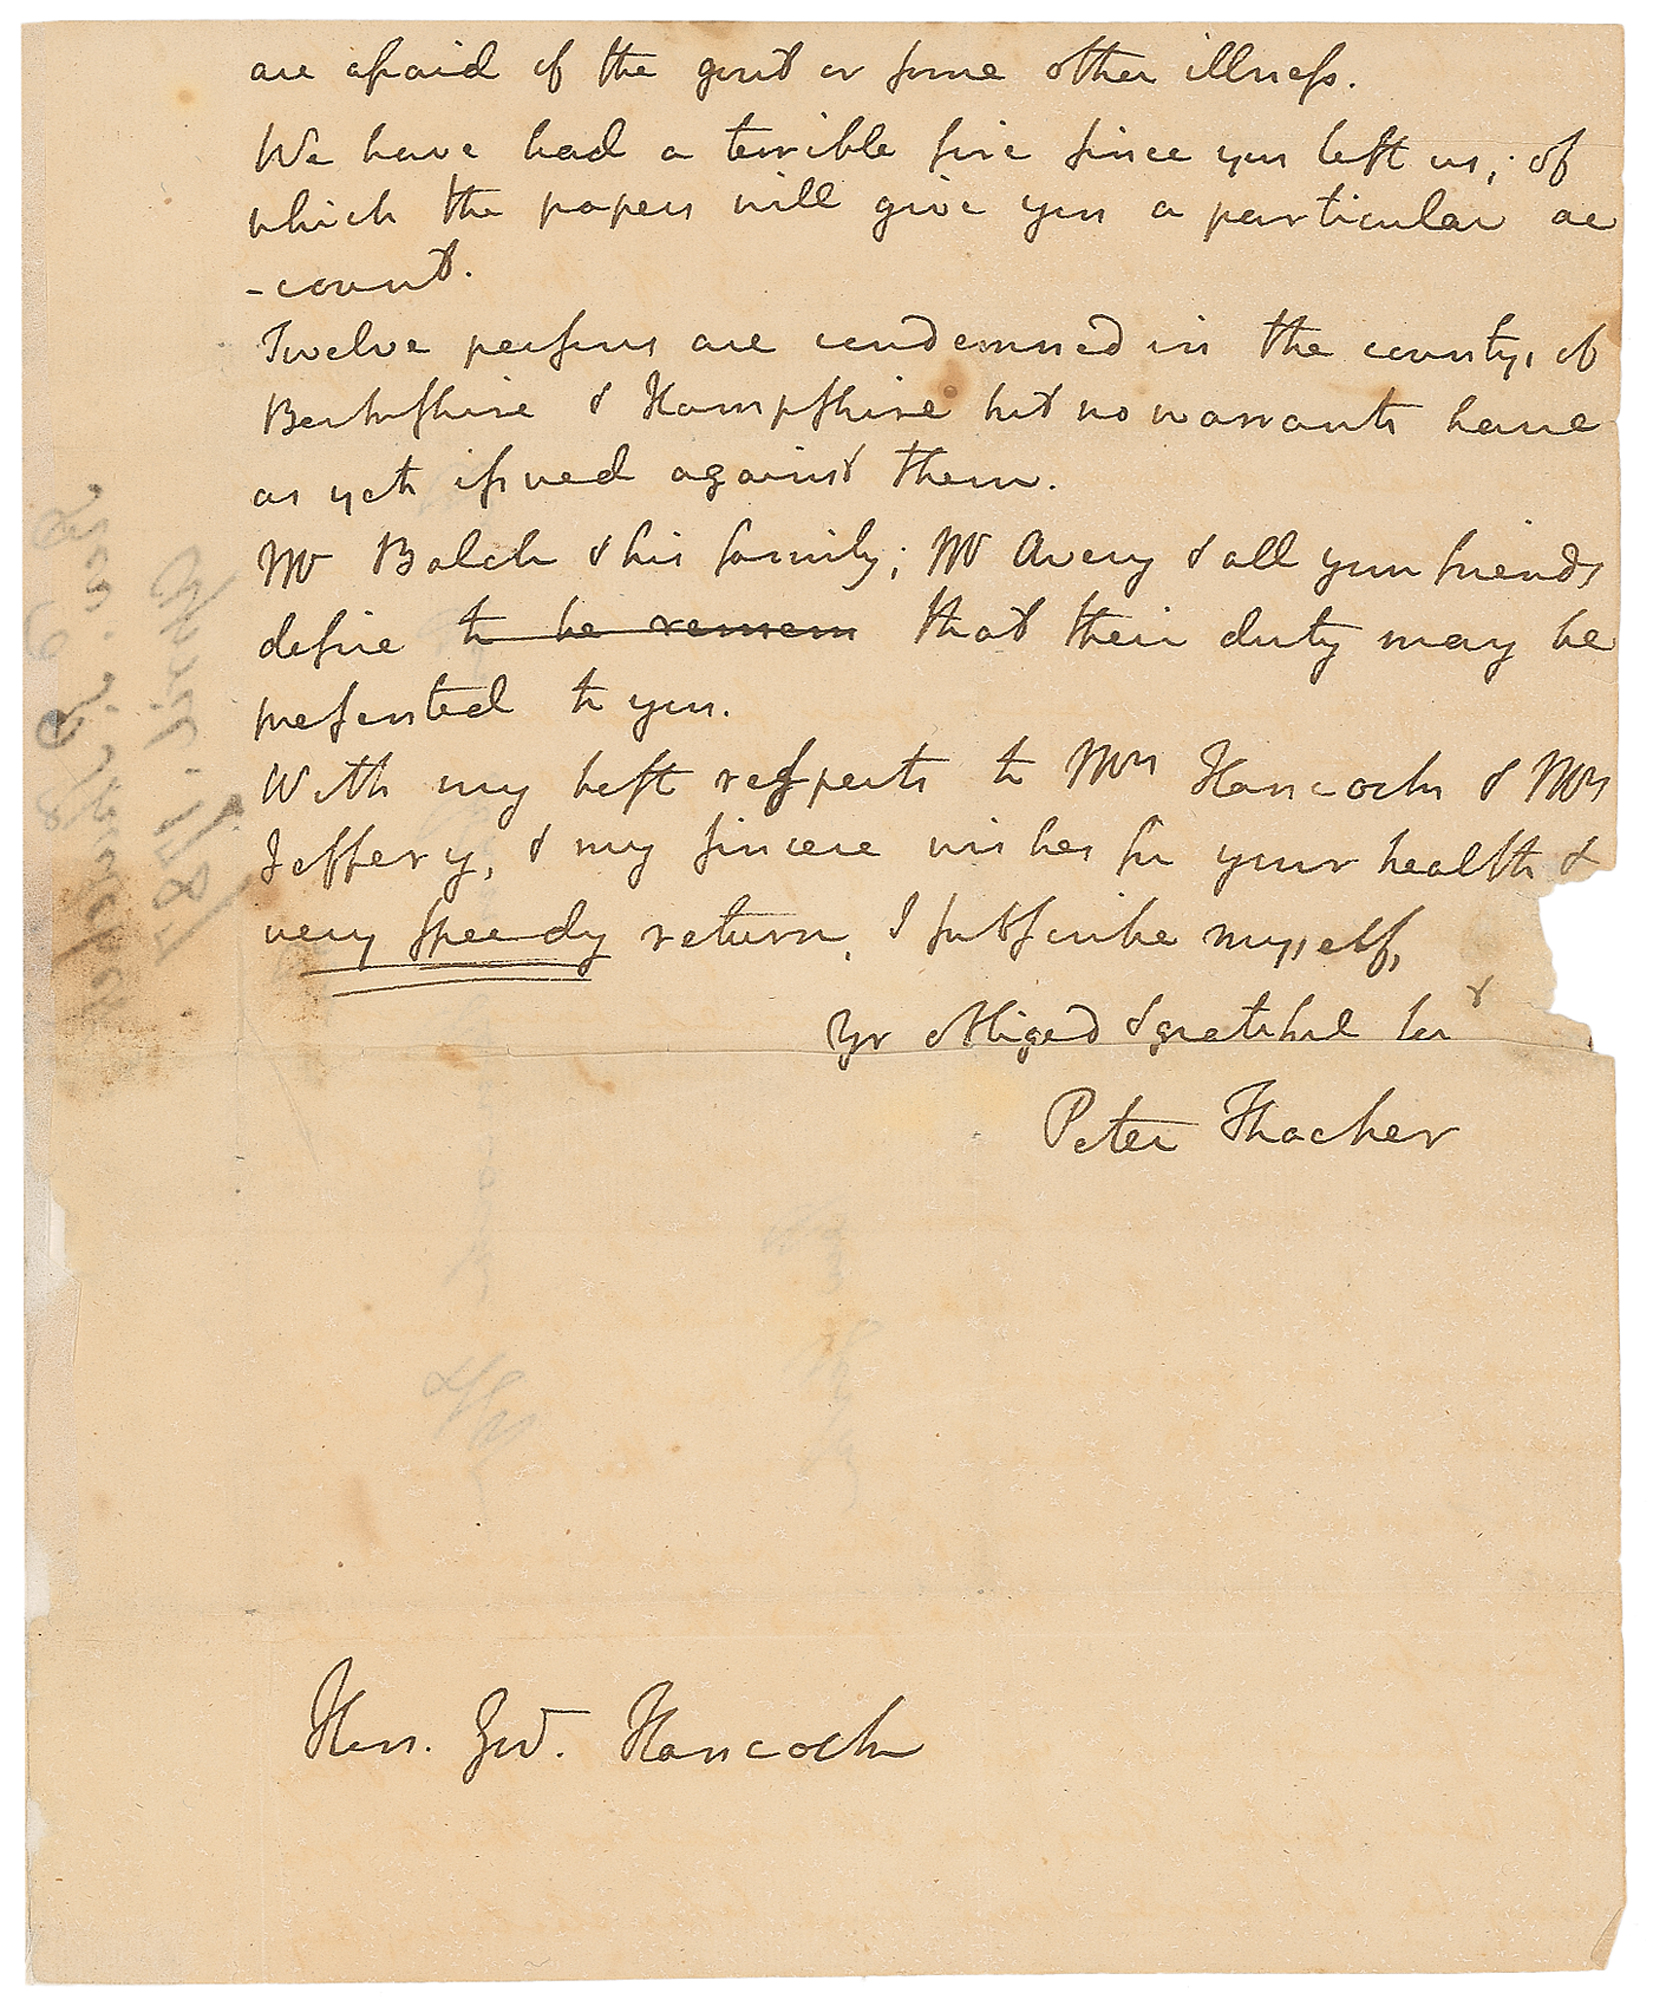 are afraid of the gout or some other illness.
We have had a terrible fire since you left us; of
which the papers will give you a particular ac
-count.
Twelve persons are condemned in the county, of
Berkshire & Hampshire but no warrants have
as yet issued against them.
Mr Balch & his family; Mr Avery & all your friends
desire to be remem that their duty may be
presented to you.
With my best respects to Mrs Hancock & Mrs
Jeffery, & my sincere wishes for your health &
very speedy return, I subscribe myself,
Yr obliged & grateful ser
t
Peter Thacher
Hon. Gov. Hancock